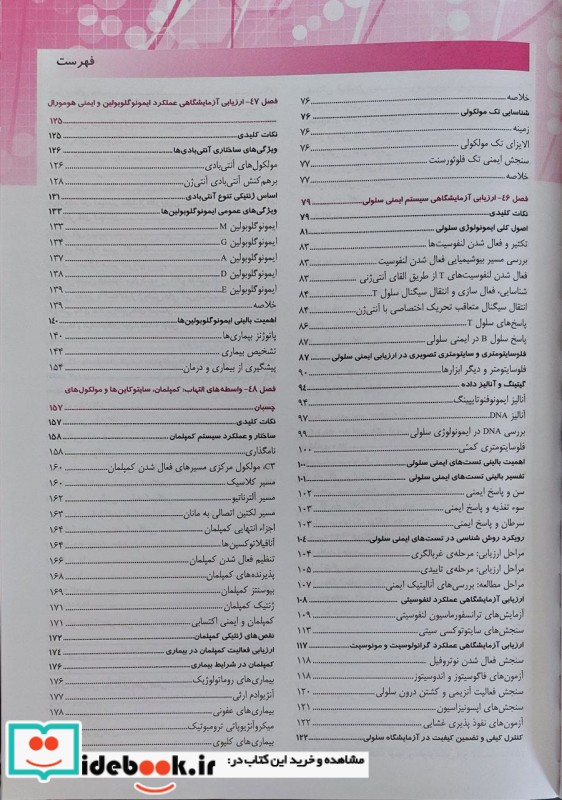 فهرست
خلاصه ۷۶
شناسایی تک مولکولی ۷۶
زمینه ۷۶
الایزای تک مولکولی ۷۶
سنجش ایمنی تک فلوئورسنت ۷۷
خلاصه ۷۷
فصل ۴۶- ارزیابی آزمایشگاهی سیستم ایمنی سلولی ۷۹
نکات کلیدی ۷۹
اصول کلی ایمونولوژی سلولی ۸۱
تکثیر و فعال شدن لنفوسیت‌ها ۸۳
بررسی مسیر بیوشیمیایی فعال شدن لنفوسیت ۸۳
فعال شدن لنفوسیت‌های T از طریق القای آنتی‌ژنی ۸۳
شناسایی، فعال سازی و انتقال سیگنال سلول T ۸۴
انتقال سیگنال متعاقب تحریک اختصاصی با آنتی‌ژن ۸۴
پاسخ‌های سلول T ۸۶
پاسخ سلول B در ایمنی سلولی ۸۷
فلوسایتومتری و سایتومتری تصویری در ارزیابی ایمنی سلولی ۸۷
فلوسایتومتر و دیگر ابزارها ۹۰
گیتینگ و آنالیز داده ۹۴
آنالیز ایمونوفنوتایپینگ ۹۴
آنالیز DNA ۹۷
بررسی DNA در ایمونولوژی سلولی ۹۹
فلوسایتومتری کمّی ۱۰۰
اهمیت بالینی تست‌های ایمنی سلولی ۱۰۰
تفسیر بالینی تست‌های ایمنی سلولی ۱۰۱
سن و پاسخ ایمنی ۱۰۲
سوء تغذیه و پاسخ ایمنی ۱۰۳
سرطان و پاسخ ایمنی ۱۰۳
رویکرد روش شناسی در تست‌های ایمنی سلولی ۱۰۴
مراحل ارزیابی: مرحله‌ی غربالگری ۱۰۴
مراحل ارزیابی: مرحله‌ی تاییدی ۱۰۵
مراحل مطالعه: بررسی‌های آنالیتیک ایمنی ۱۰۷
ارزیابی آزمایشگاهی عملکرد لنفوسیتی ۱۰۸
آزمایش‌های ترانسفورماسیون لنفوسیتی ۱۰۹
سنجش‌های سایتوتوکسی سیتی ۱۱۳
ارزیابی آزمایشگاهی عملکرد گرانولوسیت و مونوسیت ۱۱۷
سنجش فعال شدن نوتروفیل ۱۱۸
آزمون‌های فاگوسیتوز و اندوسیتوز ۱۱۸
سنجش فعالیت آنزیمی و کشتن درون سلولی ۱۲۰
سنجش‌های اپسونیزاسیون ۱۲۱
آزمون‌های نفوذ پذیری غشایی ۱۲۲
کنترل کیفی و تضمین کیفیت در آزمایشگاه سلولی ۱۲۲
فصل ۴۷- ارزیابی آزمایشگاهی عملکرد ایمونوگلوبولین و ایمنی هومورال
۱۲۵
نکات کلیدی ۱۲۵
ویژگی‌های ساختاری آنتی‌بادی‌ها ۱۲۶
مولکول‌های آنتی‌بادی ۱۲۶
برهم‌کنش آنتی‌بادی آنتی‌ژن ۱۲۸
اساس ژنتیکی تنوع آنتی‌بادی ۱۳۱
ویژگی‌های عمومی ایمونوگلوبولین‌ها ۱۳۳
ایمونوگلوبولین M ۱۳۳
ایمونوگلوبولین G ۱۳۴
ایمونوگلوبولین A ۱۳۷
ایمونوگلوبولین D ۱۳۸
ایمونوگلوبولین E ۱۳۹
خلاصه ۱۳۹
اهمیت بالینی ایمونوگلوبولین‌ها ۱۴۰
پاتوژنز بیماری‌ها ۱۴۰
تشخیص بیماری ۱۴۴
پیشگیری از بیماری و درمان ۱۵۴
فصل ۴۸- واسطه‌های التهاب: کمپلمان، سایتوکاین‌ها و مولکول‌های
چسبان ۱۵۷
نکات کلیدی ۱۵۷
ساختار و عملکرد سیستم کمپلمان ۱۵۸
نامگذاری ۱۵۸
C۳، مولکول مرکزی مسیرهای فعال شدن کمپلمان ۱۶۰
مسیر کلاسیک ۱۶۰
مسیر آلترناتیو ۱۶۲
مسیر لکتین اتصالی به مانان ۱۶۳
اجزاء انتهایی کمپلمان ۱۶۴
آنافیلاتوکسین‌ها ۱۶۴
تنظیم فعال شدن کمپلمان ۱۶۶
پذیرنده‌های کمپلمان ۱۶۸
بیوسنتز کمپلمان ۱۶۸
ژنتیک کمپلمان ۱۷۱
کمپلمان و ایمنی اکتسابی ۱۷۱
نقص‌های ژنتیکی کمپلمان ۱۷۲
ارزیابی فعالیت کمپلمان در بیماری ۱۷۴
کمپلمان در شرایط بیماری ۱۷۶
بیماری‌های روماتولوژیک ۱۷۶
آنژیوادم ارثی ۱۷۷
بیماری‌های عفونی ۱۷۸
میکروآنژیوپاتی ترومبوتیک
بیماری‌های کلیوی
مشاهده و خرید این کتاب در:
idebook.ir